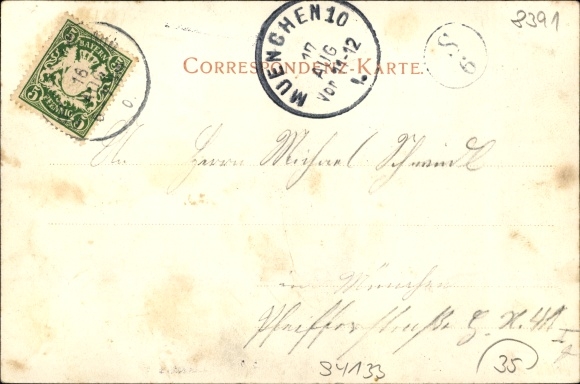 8391
BAYERN
5 5
PFENNIG
16
MUENCHEN 10
17
AUG
Vor 11-12
CORRESPONDENZ-KARTE.
An Herrn Michael Schmidl
in München
Pfeifferstraße
84133
35